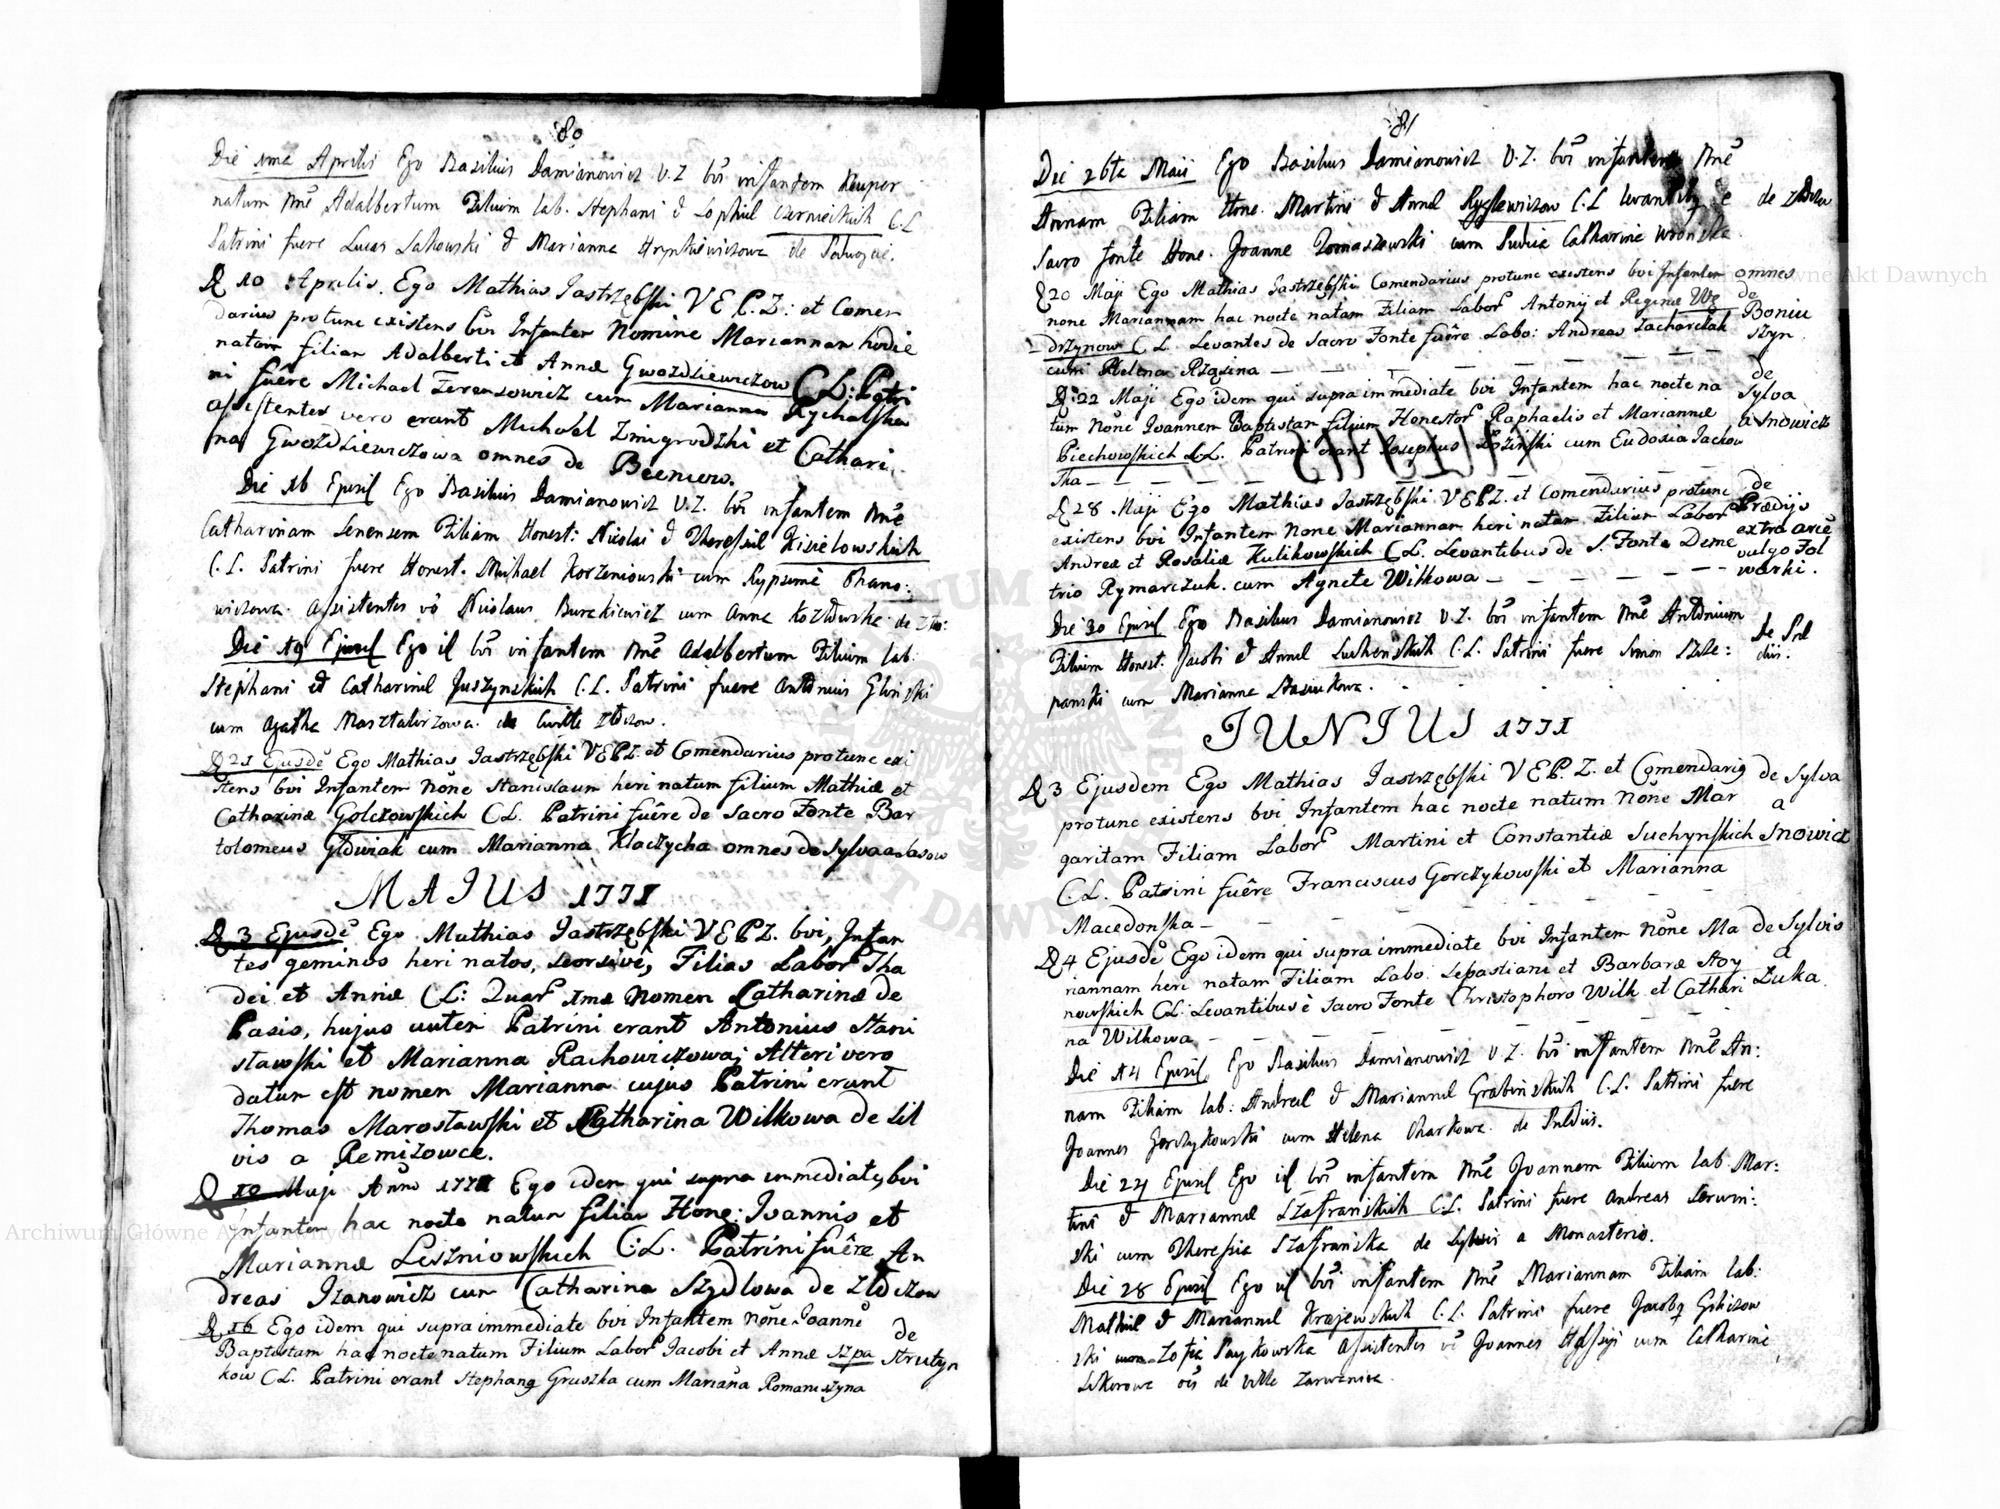 80
Die 1ma Aprilis Ego Basilius Damianowicz V.Z bvi infantem nuper
natum Nne Adalbertum Filium lab. Stephani & Sophiae Czernieckich C.L
Patrini fuere Lucas Sakowski & Marianna Hrynkiewiczowa de
D 10 Aprilis. Ego Mathias Jastrzębski V E P.Z: et Comen
darius protunc existens bvi Infantem Nomine Mariannam hodie
natam filiam Adalberti et Annae Gwozdziewiczow C L: Patri
ni fuêre Michael Terensowicz cum Marianna Rychalska
assistentes vero erant Michael Zmigrodzki et Cathari
na Gwozdziewiczowa omnes de Bieniow.
Die 16 Ejusd Ego Basilius Damianowicz V.Z. bvi infantem Nne
Catharinam Senensem Filiam Honest: Nicolai & Theressiae Kisielowskich
C.L. Patrini fuere Honest. Michael Korzeniowski cum Rypsime Ohano:
wiczowa. Assistentes vo Nicolaus Burzkiewicz cum Anna Kozłowska de Zło:
Die 19 Ejusd Ego id bvi infantem Nne Adalbertum Filium lab.
Stephani et Catharinae Juszynskich C.L. Patrini fuere Antonius Glinski
cum Agatha Masztalirzowa. de Civitte Złoczow.
D 21 Ejusdē Ego Mathias Jastrzębski V E P Z. et Comendarius protunc exi
stens bvi Infantem Nōne Stanislaum heri natum filium Mathiae et
Catharinae Golczowskich C L. Patrini fuêre de Sacro Fonte Bar
tolomeus Główiak cum Marianna Klaczycha omnes de Sylva a Sasow
MAJUS 1771
D 3 Ejusdē Ego Mathias Jastrzębski V E P Z. bvi, Infan
tes geminos heri natos, seorsive, Filias Labor Tha
dei et Annae C L: Quar 1mae Nomen Catharinae de
Pasis, hujus autem Patrini erant Antonius Stani
sławski et Marianna Rachowiczowa; Alteri vero
datum est nomen Marianna cujus Patrini erant
Thomas Marosławski et Catharina Wilkowa de Sil
vis a Remizowce.
D 10 Maji Anno 1771 Ego idem qui supra immediate, bvi
Infantem hac nocte natum filiam Hone: Joannis et
Mariannae Leszniowskich C:L. Patrini fuêre An
dreas Izanowicz cum Catharina Szydlowa de Złoczow
D 16 Ego idem qui supra immediate bvi Infantem Nōne Joannē
Baptistam hac nocte natum Filium Labor Jacobi et Annae Szpa
kow C L. Patrini erant Stephang Gruszka cum Mariana Romaniszyna
de
Strutyn
81
Die 26ta Maii Ego Basilius Damianowicz V.Z. bvi infantem Nne
Annam Filiam Hone. Martini & Annae Ryglewiczow C.L levantibg e
Sacro fonte Hone. Joanne Tomaszewski cum Pudica Catharina Wronska.
de Złoczow
D 20 Maji Ego Mathias Jastrzębski Comendarius protunc existens bvi Infantem
none Mariannam hac nocte natam Filiam Labor Antonij et Reginae We
drzynow C L. Levantes de Sacro Fonte fuêre Labo: Andreas Zacharczak
cum Helena Rząsina
omnes
de
Boniu
szyn
D 22 Maji Ego idem qui supra immediate bvi Infantem hac nocte na
tum None Joannem Baptistam filium Honestor Raphaelis et Mariannae
Piechowskich C L. Patrini erant Josephus Łozinski cum Eudoxia Jackow
ska
de
Sylva
a Snowicz
D 28 Maji Ego Mathias Jastrzębski V E P Z. et Comendarius protunc
existens bvi Infantem None Mariannam heri natam Filiam Labor
Andreae et Rosaliae Kulikowskich C L. Levantibus de S. Fonte Deme
trio Rymarczuk. cum Agnete Wilkowa
de
Praedijs
extra arcē
vulgo Fol
warki.
Die 30 Ejusd Ego Basilius Damianowicz V.Z. bvi infantem Nne Antonium
Filium Honest. Jacobi & Annae C.L. Patrini fuere Simon Szcze:
panski cum Marianna Stasiukowa.
de Prae
diis.
JUNIUS 1771
D 3 Ejusdem Ego Mathias Jastrzębski V E P. Z. et Comendarig
protunc existens bvi Infantem hac nocte natum Nōne Mar
garitam Filiam Labor Martini et Constantiae Suchynskich
C.L. Patrini fuêre Franciscus Gorczykowski et Marianna
Macedonska
de Sylva
a
Snowicz
D 4 Ejusdē Ego idem qui supra immediate bvi Infantem Nōne Ma
riannam heri natam Filiam Labo. Sebastiani et Barbarae Hoy
nowskich C L. Levantibus è Sacro Fonte Christophoro Wilk et Cathari
na Wilkowa
de Sylvis
a
Łuka.
Die 14 Ejusd. Ego Basilius Damianowicz V.Z. bvi infantem Nne An:
nam Filiam lab: Andreae & Mariannae Grabinskich C.L. Patrini fuere
Joannes Jerczykowski cum Helena Charkowa. de Praediis.
Die 24 Ejusd Ego id bvi infantem Nne Joannem Filium lab Mar:
tini & Mariannae Szafranskich C.L. Patrini fuere Andreas Serwin:
ski cum Theressia Szafranska de Sylvis a Monasterio.
Die 28 Ejusd Ego id bvi infantem Nne Mariannam Filiam lab.
Mathiae & Mariannae Krajewskich C.L. Patrini fuere Jacobg
ski cum Zofia Paykowska Assistentes vo Joannes cum Catharina
oes de Villa Zarwanica.